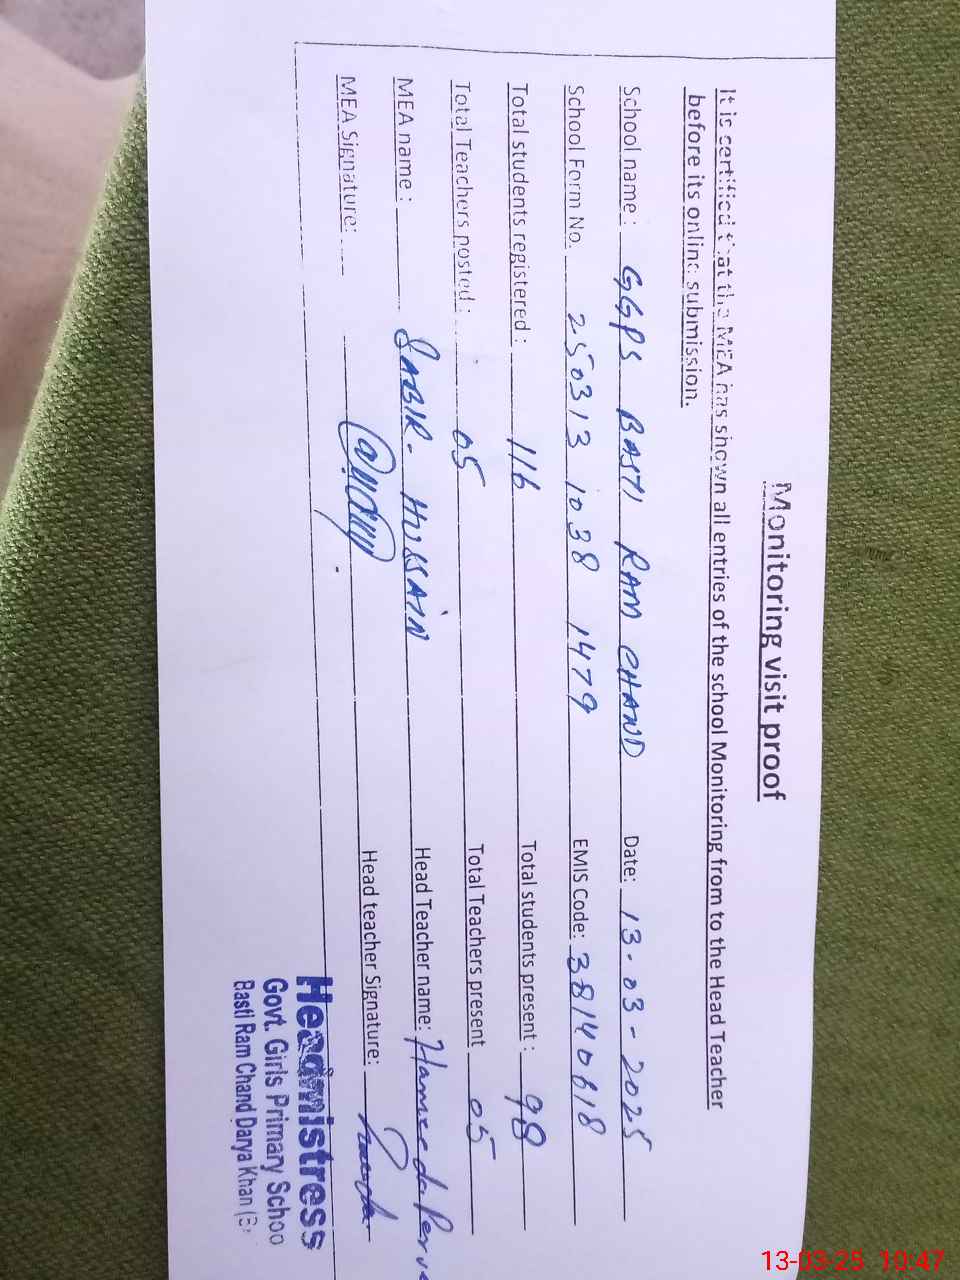 Monitoring visit proof
It is certified that the MEA has shown all entries of the school Monitoring from to the Head Teacher
before its online submission.
School name: GGPS BASTI RAM CHAND Date: 13-03-2025
School Form No. 250313 1038 1479 EMIS Code: 38140618
Total students registered: 116 Total students present: 98
Total Teachers posted: 05 Total Teachers present 05
MEA name: SABIR HUSSAIN Head Teacher name: Hameeda Parve
MEA Signature: Head teacher Signature:
Headmistress
Govt. Girls Primary Schoo
Basti Ram Chand Darya Khan (B
13-03-25 10:47